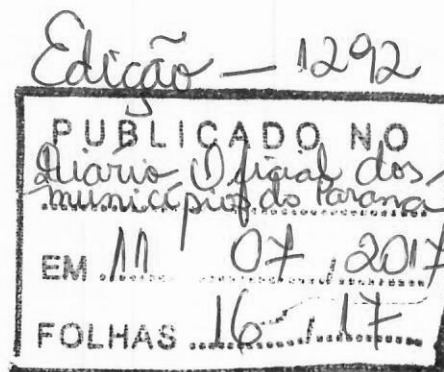 Edição - 1292
PUBLICADO NO
Diário Oficial dos
municípios do Paraná
EM 11 07, 2017
FOLHAS 16, 17